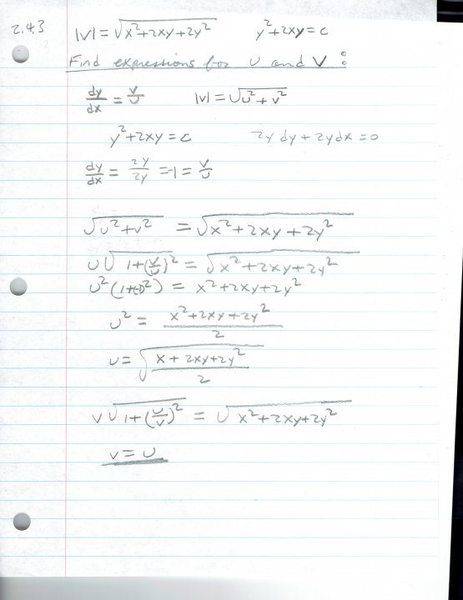 2.43 |V| = √x²+2xy+2y² y²+2xy=c
Find expressions for u and v :
dy/dx = v/u |V| = √u²+v²
y²+2xy=c 2y dy + 2y dx = 0
dy/dx = 2y/2y = -1 = v/u
√u²+v² = √x²+2xy+2y²
u√1+(v/u)² = √x²+2xy+2y²
u²(1+(-1)²) = x²+2xy+2y²
u² = x²+2xy+2y²/2
u = √x+2xy+2y²/2
v√1+(u/v)² = √x²+2xy+2y²
v = u